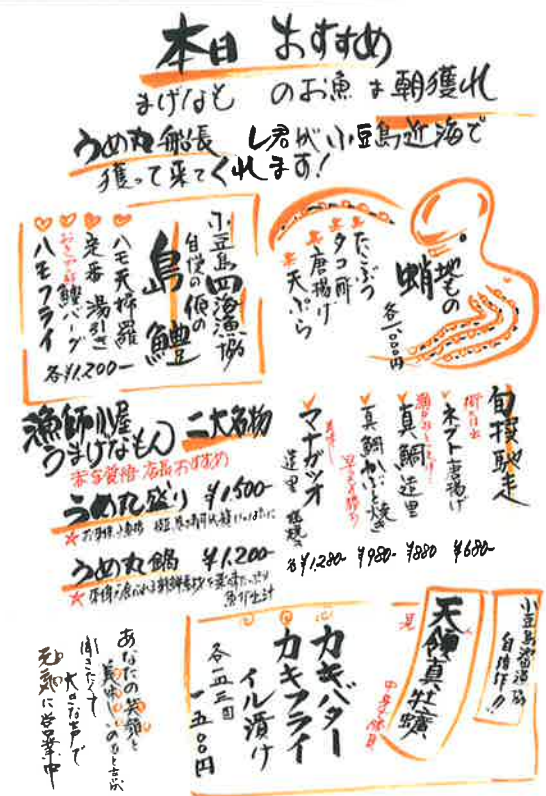 本日 おすすめ
まげなもん のお魚は朝獲れ
うめ丸船長 L君が小豆島近海で
獲って来てくれます!
小豆島四海漁協
自慢の俺の
島鱧
ハモ天婦羅
定番 湯引き
鱧バーグ
ハモフライ
各¥1,200-
地もの
蛸
各一、〇〇〇円
たこぶつ
タコ酢
唐揚げ
天ぷら
漁師小屋
うまげなもん
二大名物
赤字覚悟 店長おすすめ
うめ丸盛り ¥1,500-
うめ丸鍋 ¥1,200-
旬採馳走
ネブト唐揚げ
¥680-
真鯛造里
¥880
真鯛かぶと焼き
¥980-
美味し
マナガツオ
造里 塩焼き
各¥1,280-
小豆島池田漁協
自信作!!
天領真牡蠣
カキバター
カキフライ
イル漬け
一、五〇〇円
あなたの笑顔と
美味しいのひと言が
聞きたくて
大きな声で
元気に営業中